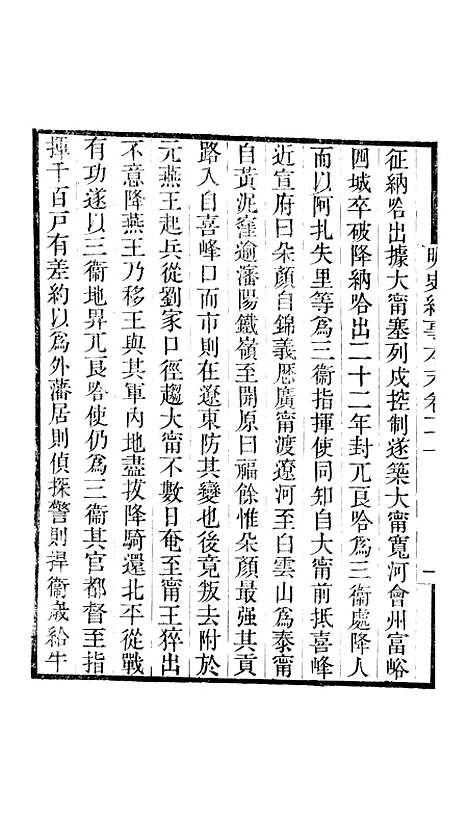 征納哈出據大甯塞列戍控制遂築大甯寬河會州富峪
四城卒破降納哈出二十二年封兀良哈爲三衞處降人
而以阿扎失里等爲三衞指揮使同知自大甯前抵喜峰
近宣府曰朵顏自錦義歷廣甯渡遼河至白雲山爲泰甯
自黃泥窪逾瀋陽鐵嶺至開原曰福餘惟朵顏最强其貢
路入自喜峰口而市則在遼東防其變也後竟叛去附於
元燕王起兵從劉家口徑趨大甯不數日奄至甯王猝出
不意降燕王乃移王與其軍內地盡拔降騎還北平從戰
有功遂以三衞地畀兀良哈使仍爲三衞其官都督至指
揮千百戶有差約以爲外藩居則偵探警則捍衞歲給牛